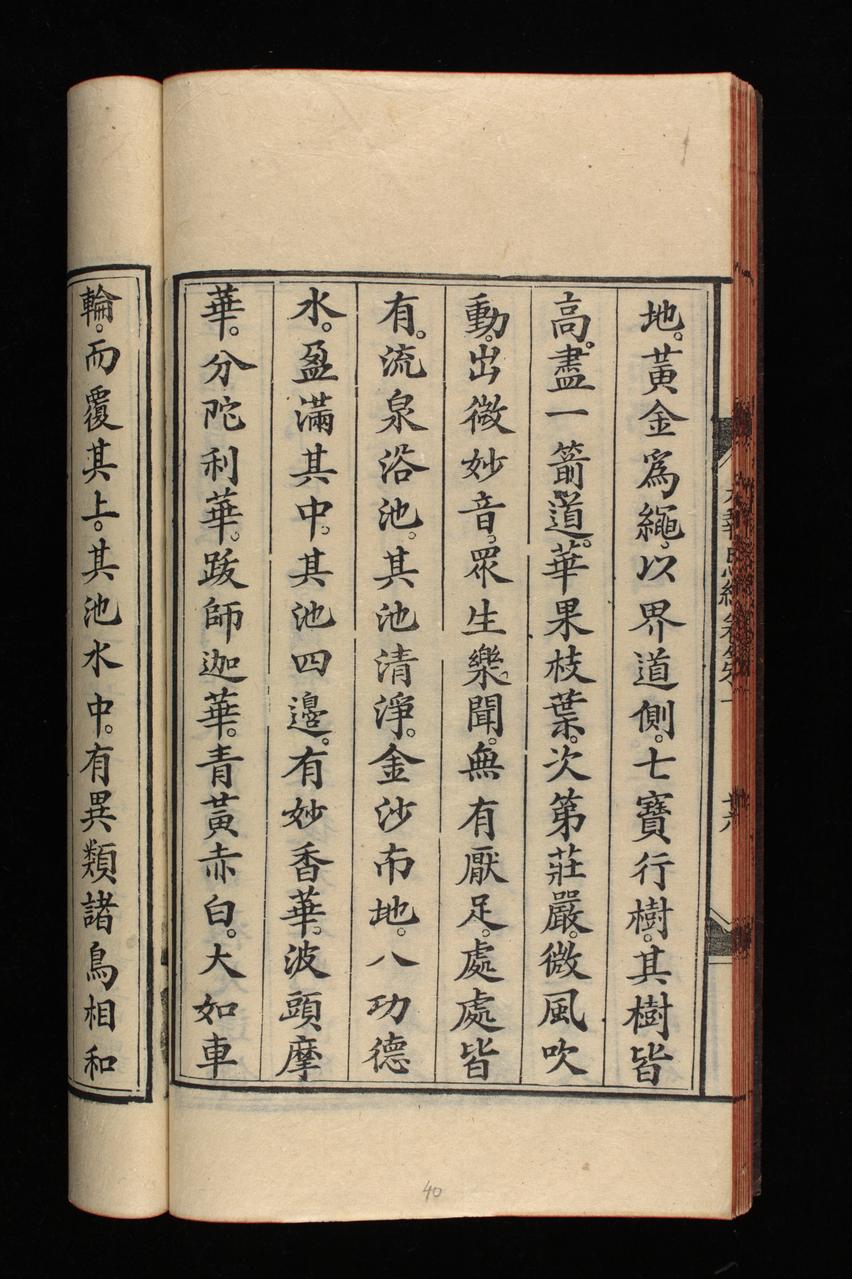 地。黃金爲繩。以界道側。七寶行樹。其樹皆
高。盡一箭道。華果枝葉次第莊嚴。微風吹
動。出微妙音。眾生樂聞。無有厭足。處處皆
有。流泉浴池。其池清淨。金沙布地。八功德
水。盈滿其中。其池四邊。有妙香華。波頭摩
華。分陀利華。跋師迦華。青黃赤白。大如車
輪。而覆其上。其池水中。有異類諸鳥相和
40